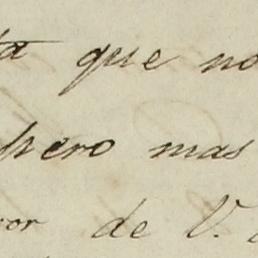 ta que no
pero mas
or de V.